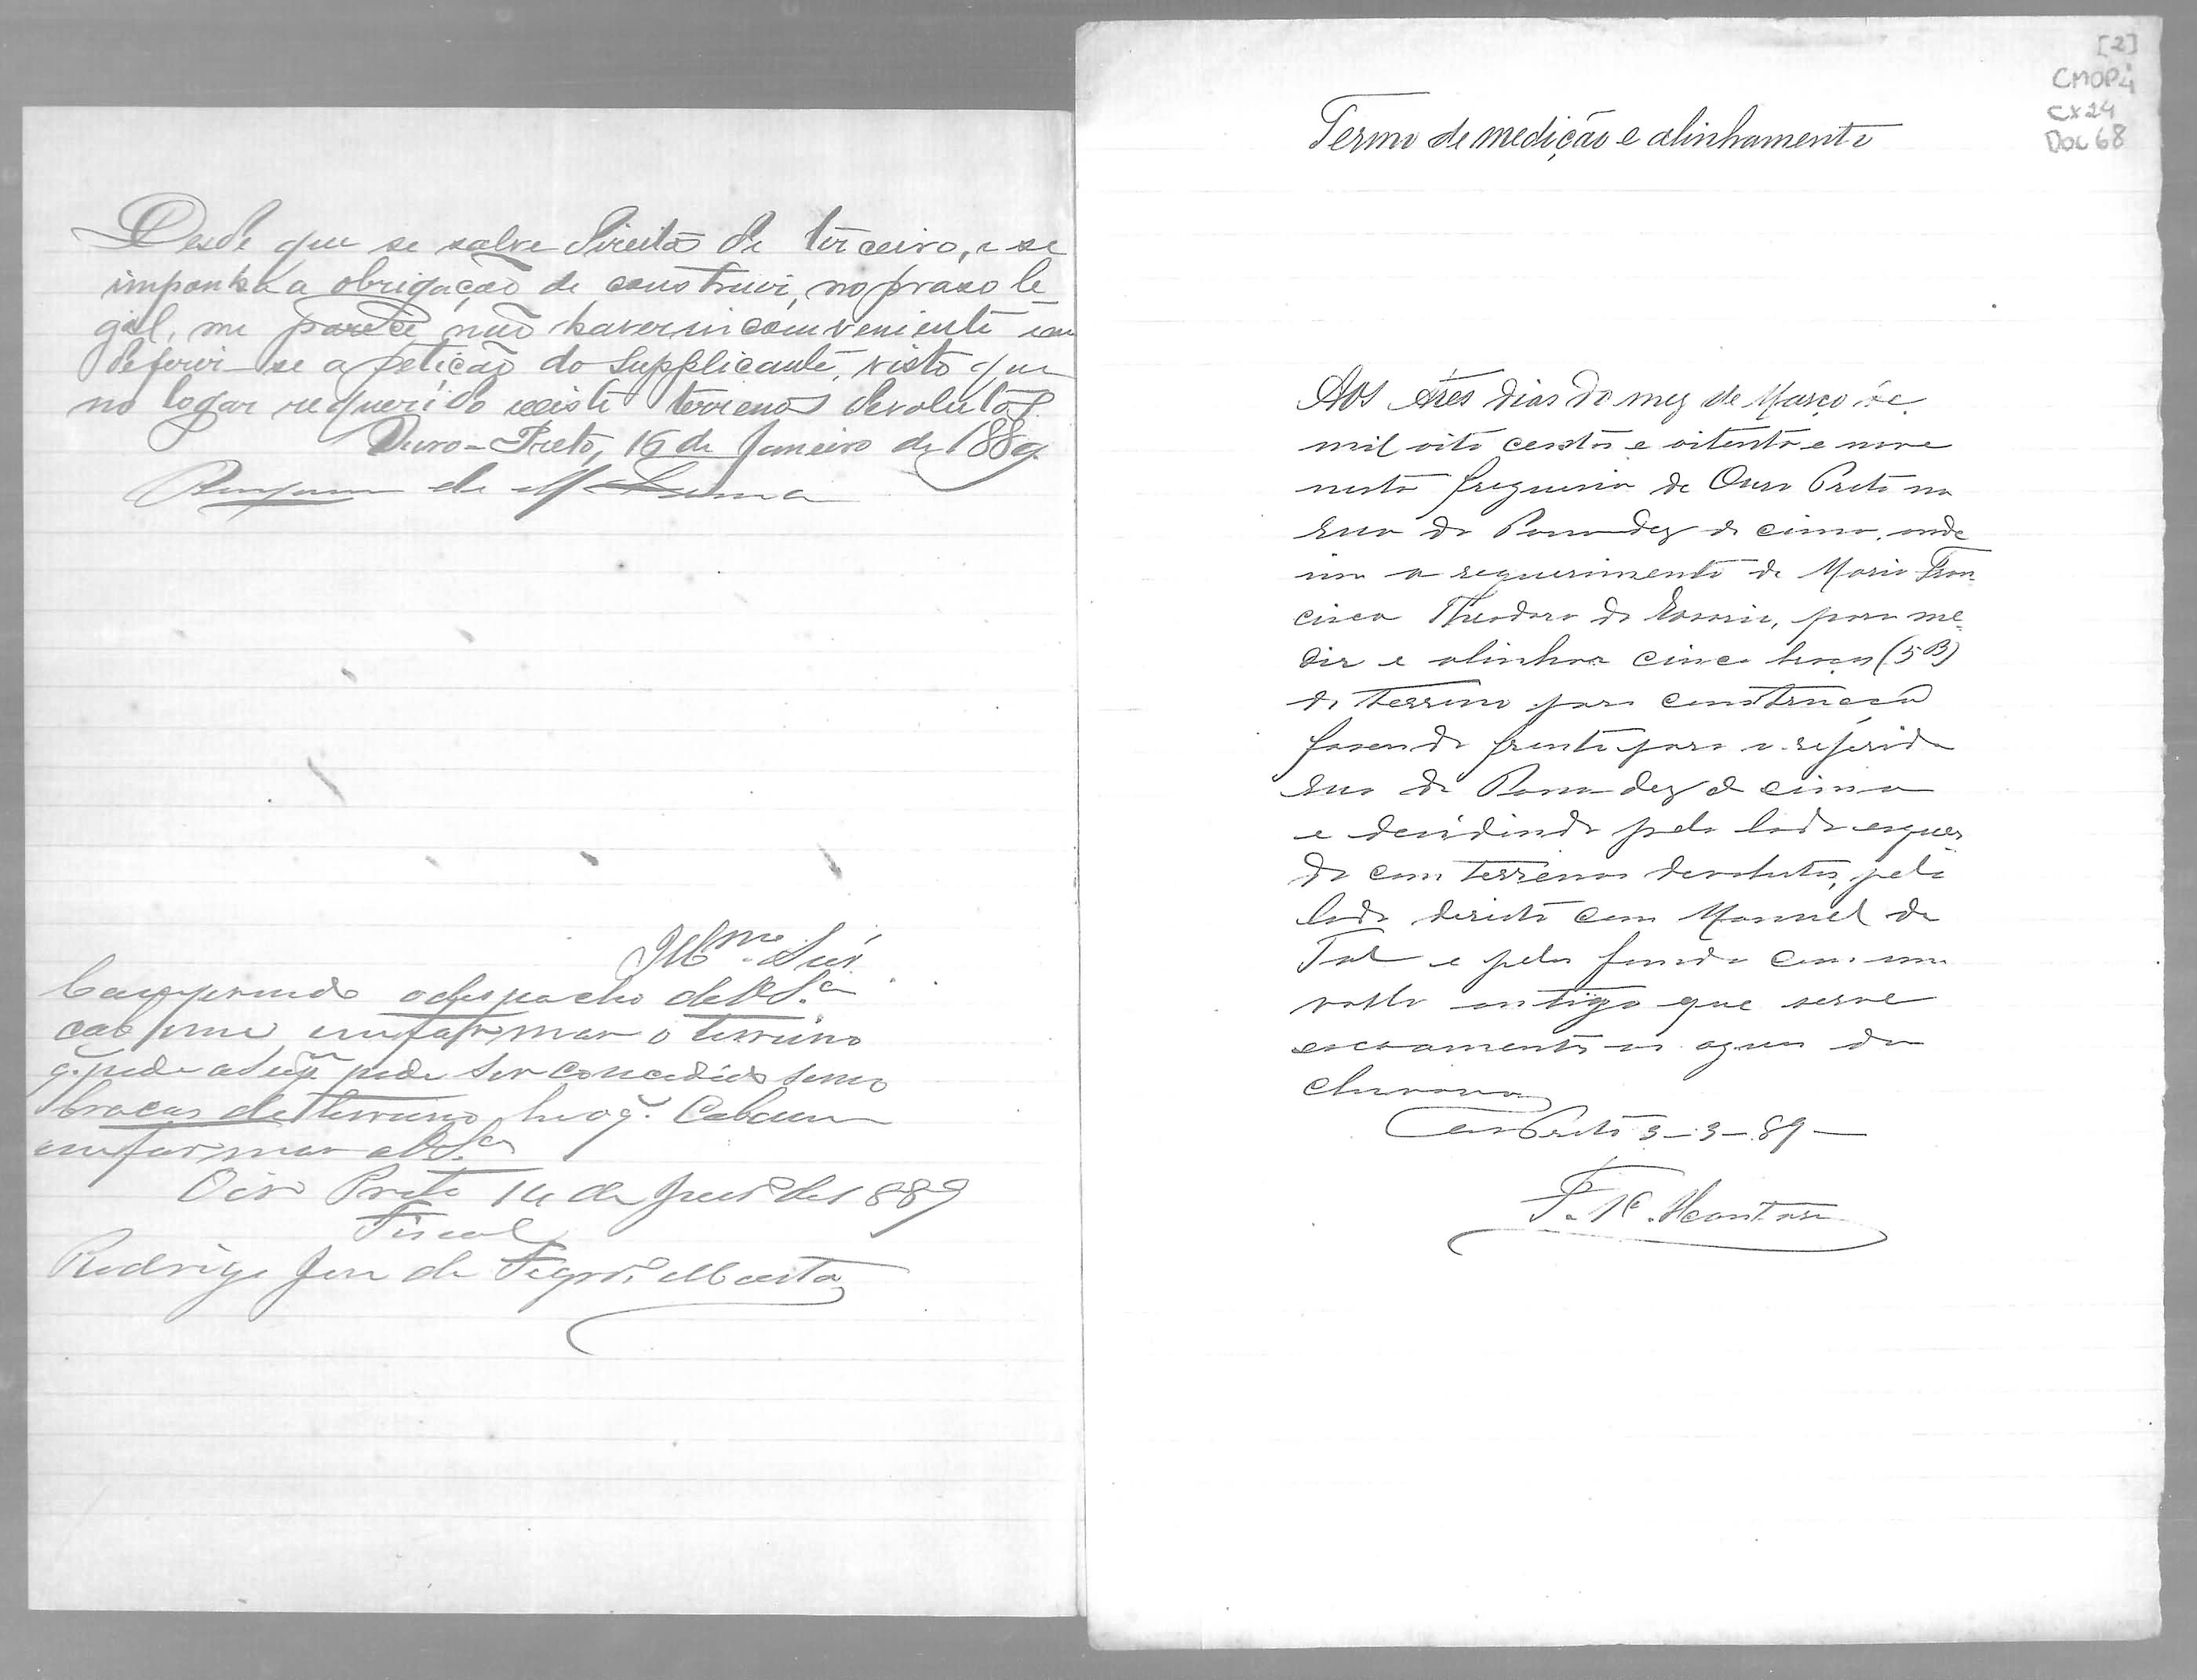 Desde que se salve direito de terceiro, e se
imponha a obrigação de construir, no praso le-
gal, me parece não haver inconveniente em
deferir-se a petição do Supplicante, visto que
no logar requerido existe terrenos devolutos.
Ouro-Preto, 16 de Janeiro de 1889.
de M Lima
Illmo. Snr.
Comprindo o despacho de V.Sa
cabe me emformar o terreno
q. pede a Supe pode ser concedido
bracas de terreno he o q.
emformar a V.Sa
Oiro Preto 14 de de 1889
Fiscal
Rodrigo Jose de Figdo Murta
[2]
CMOP
CX24
Doc 68
Termo de medição e alinhamento
Aos tres dias do mez de Março de
mil oito centos e oitenta e nove
nesta freguesia de Ouro Preto na
rua do de cima, onde
vim a requerimento de Maria Fran
cisca Theodora do Rosario, para me-
dir e alinhar cinco braças (5B)
de terreno para construcção
fasendo frente para a referida
rua do de cima
e devidindo pelo lado esquer
do com terrenos devolutos, pelo
lado direito com Manoel de
Tal e pelos fundos com um
vallo antigo que serve
escoamento as aguas da
chuva
Ouro Preto 3-3-89